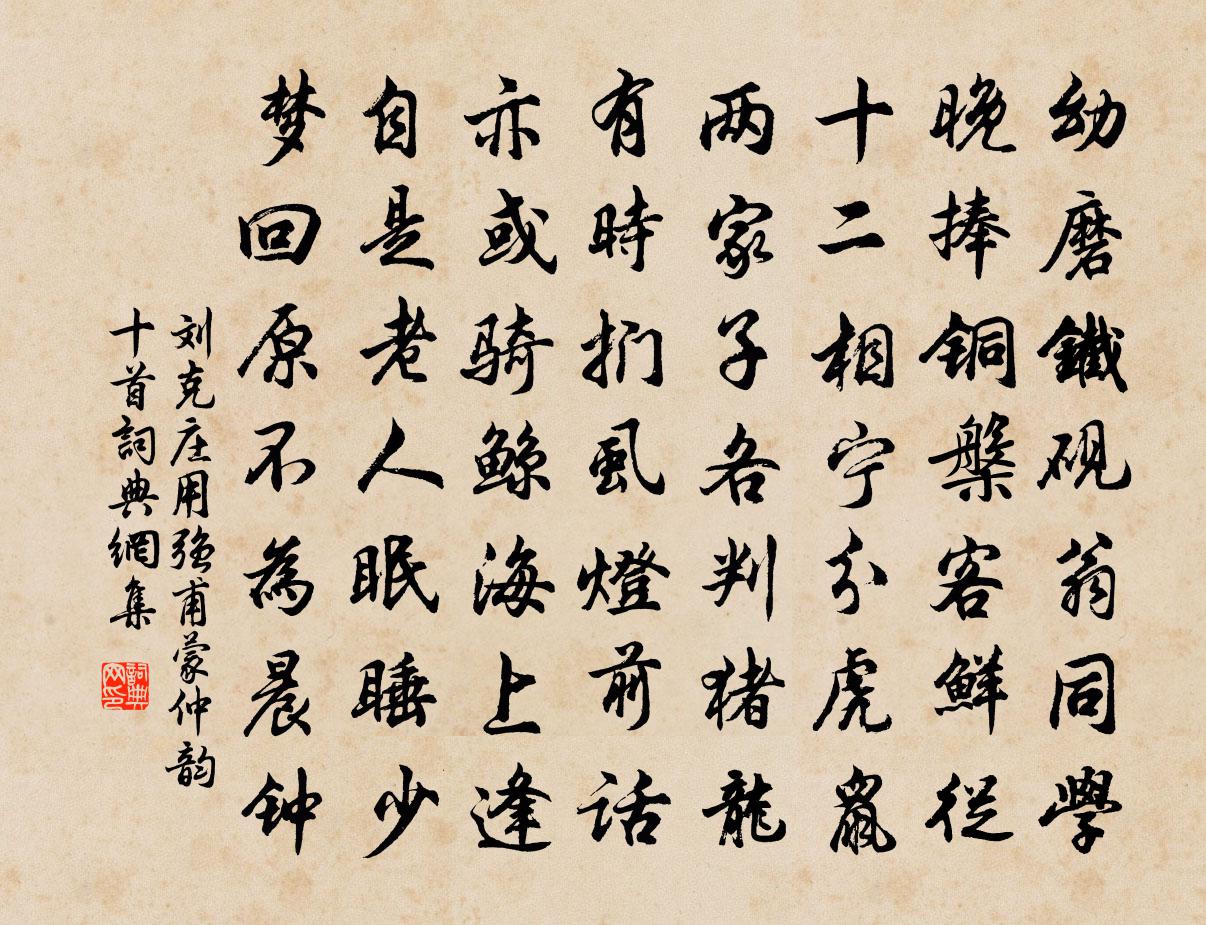 幼磨鐵硯翁同學
晚捧铜槃客鮮從
十二相宁分虎鼠
两家子各判猪龍
有時捫虱燈前話
亦或骑鲸海上逢
自是老人眠睡少
梦回原不為晨钟
刘克庄用强甫蒙仲韵
十首詞典網集
詞典
网印